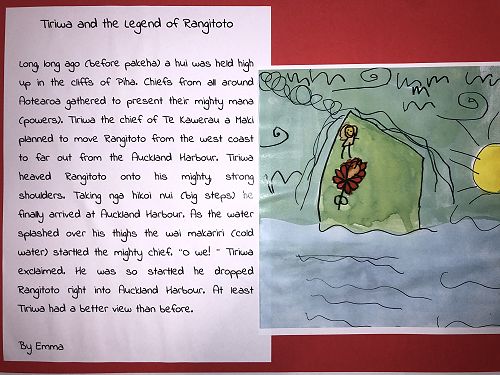 Tiriwa and the Legend of Rangitoto
Long, long ago (before pakeha) a hui was held high
up in the cliffs of Piha. Chiefs from all around
Aotearoa gathered to present their mighty mana
(powers). Tiriwa the chief of Te Kawerau a Maki
planned to move Rangitoto from the west coast
to far out from the Auckland Harbour. Tiriwa
heaved Rangitoto onto his mighty, strong
shoulders. Taking nga hikoi nui (big steps) he
finally arrived at Auckland Harbour. As the water
splashed over his thighs the wai makariri (cold
water) startled the mighty chief. "O we! " Tiriwa
exclaimed. He was so startled he dropped
Rangitoto right into Auckland Harbour. At least
Tiriwa had a better view than before.
By Emma